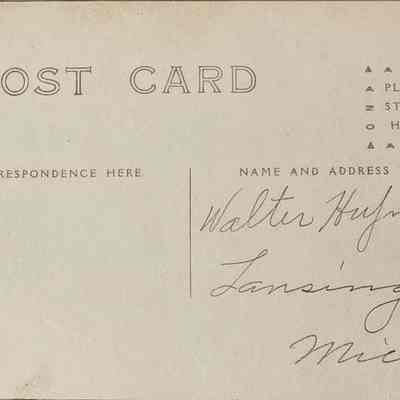 OST CARD
PL
ST
H
RESPONDENCE HERE
NAME AND ADDRESS
Walter
Lansing
Mic